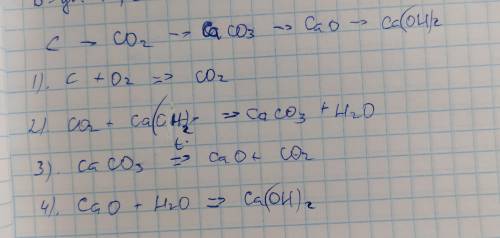 C → CO₂ → CaCO₃ → CaO → Ca(OH)₂
1). C + O₂ => CO₂
2) CO₂ + Ca(OH)₂ => CaCO₃ + H₂O
3). CaCO₃ t° => CaO + CO₂
4). CaO + H₂O => Ca(OH)₂